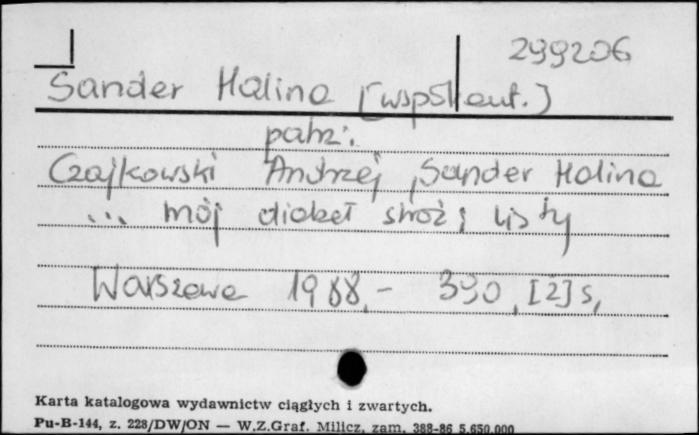 299206
Sander Halina [współaut.]
patrz:
Czajkowski Andrzej, Sander Halina
... mój diabeł stróż: listy
Warszawa 1988, - 390, [2] s,
Karta katalogowa wydawnictw ciągłych i zwartych.
Pu-B-144, z. 228/DW/ON — W.Z.Graf. Milicz, zam. 388-86 5.650.000